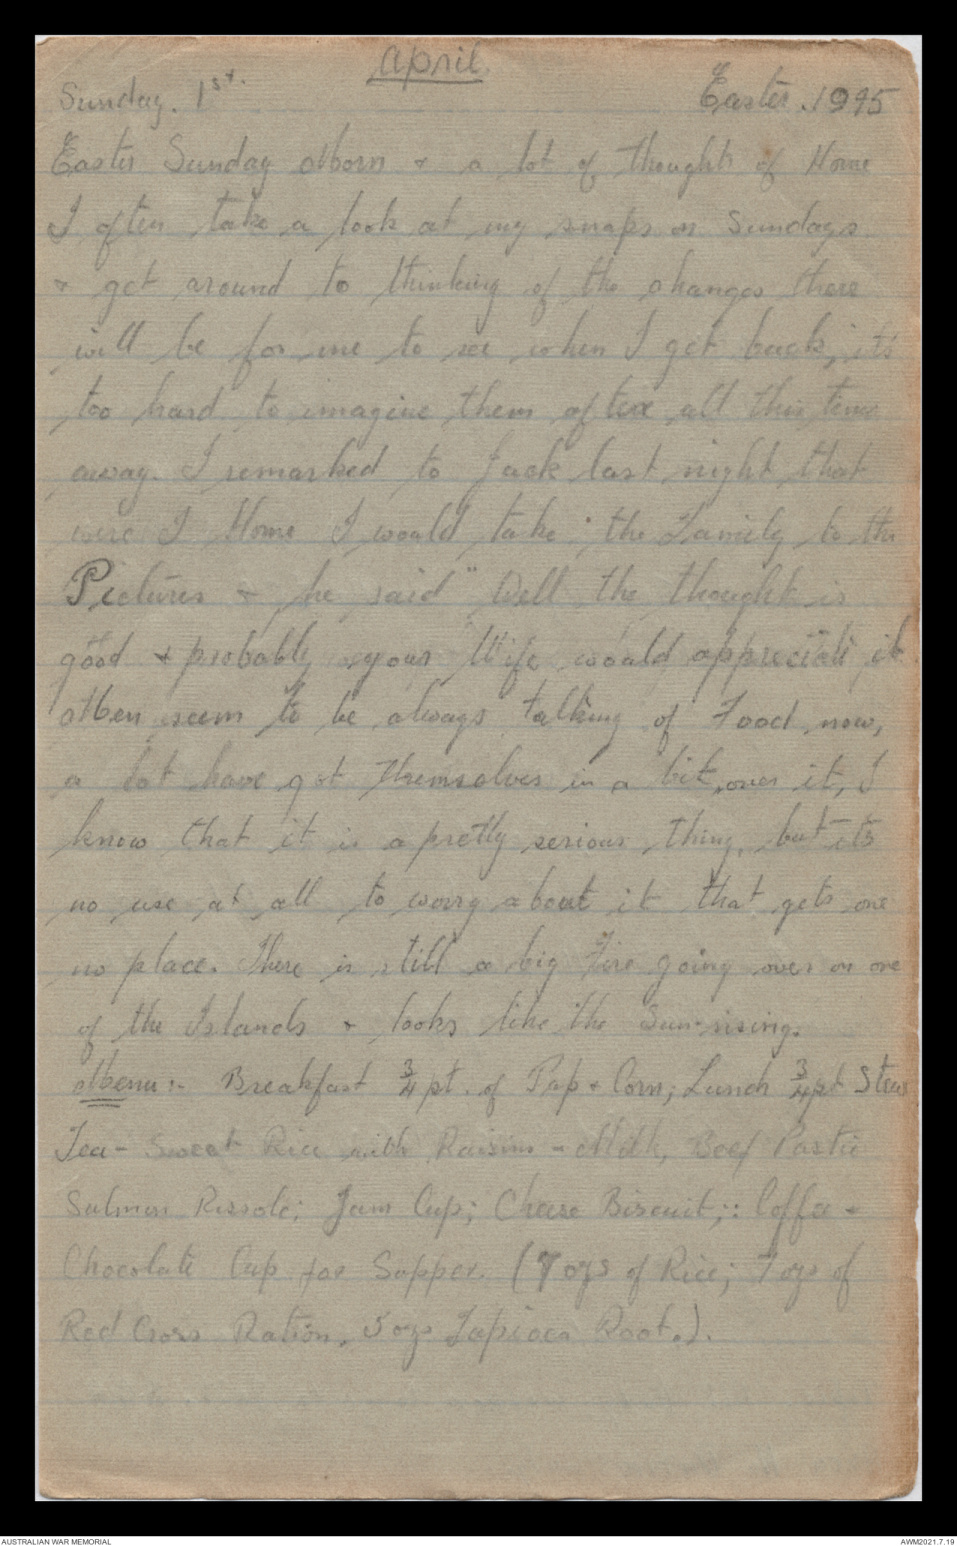 April.
Sunday. 1st. Easter. 1945
Easter Sunday Morn & a lot of thoughts of Home
I often take a look at my snaps on Sundays
& get around to thinking of the changes there
will be for me to see when I get back, it's
too hard to imagine them after all this time
away. I remarked to Jack last night that
were I Home I would take the Family to the
Pictures & he said "Well the thought is
good & probably your Wife would appreciate it
Men seem to be always talking of Food now,
a lot have got themselves in a bit over it, I
know that it is a pretty serious thing, but its
no use at all to worry about it that gets one
no place. There is still a big Fire going over on one
of the Islands & looks like the Sun-rising.
Menu:- Breakfast 3/4 pt. of Pap & Corn; Lunch 3/4 pt Stew
Tea - Sweet Rice with Raisins - Milk, Beef Pastie
Salmon Rissole; Jam Cup; Cheese Biscuit;: Coffee -
Chocolate Cup for Supper. (7 ozs of Rice; 7 ozs of
Red Cross Ration, 5 ozs Tapioca Root.).
AUSTRALIAN WAR MEMORIAL AWM2021.7.19